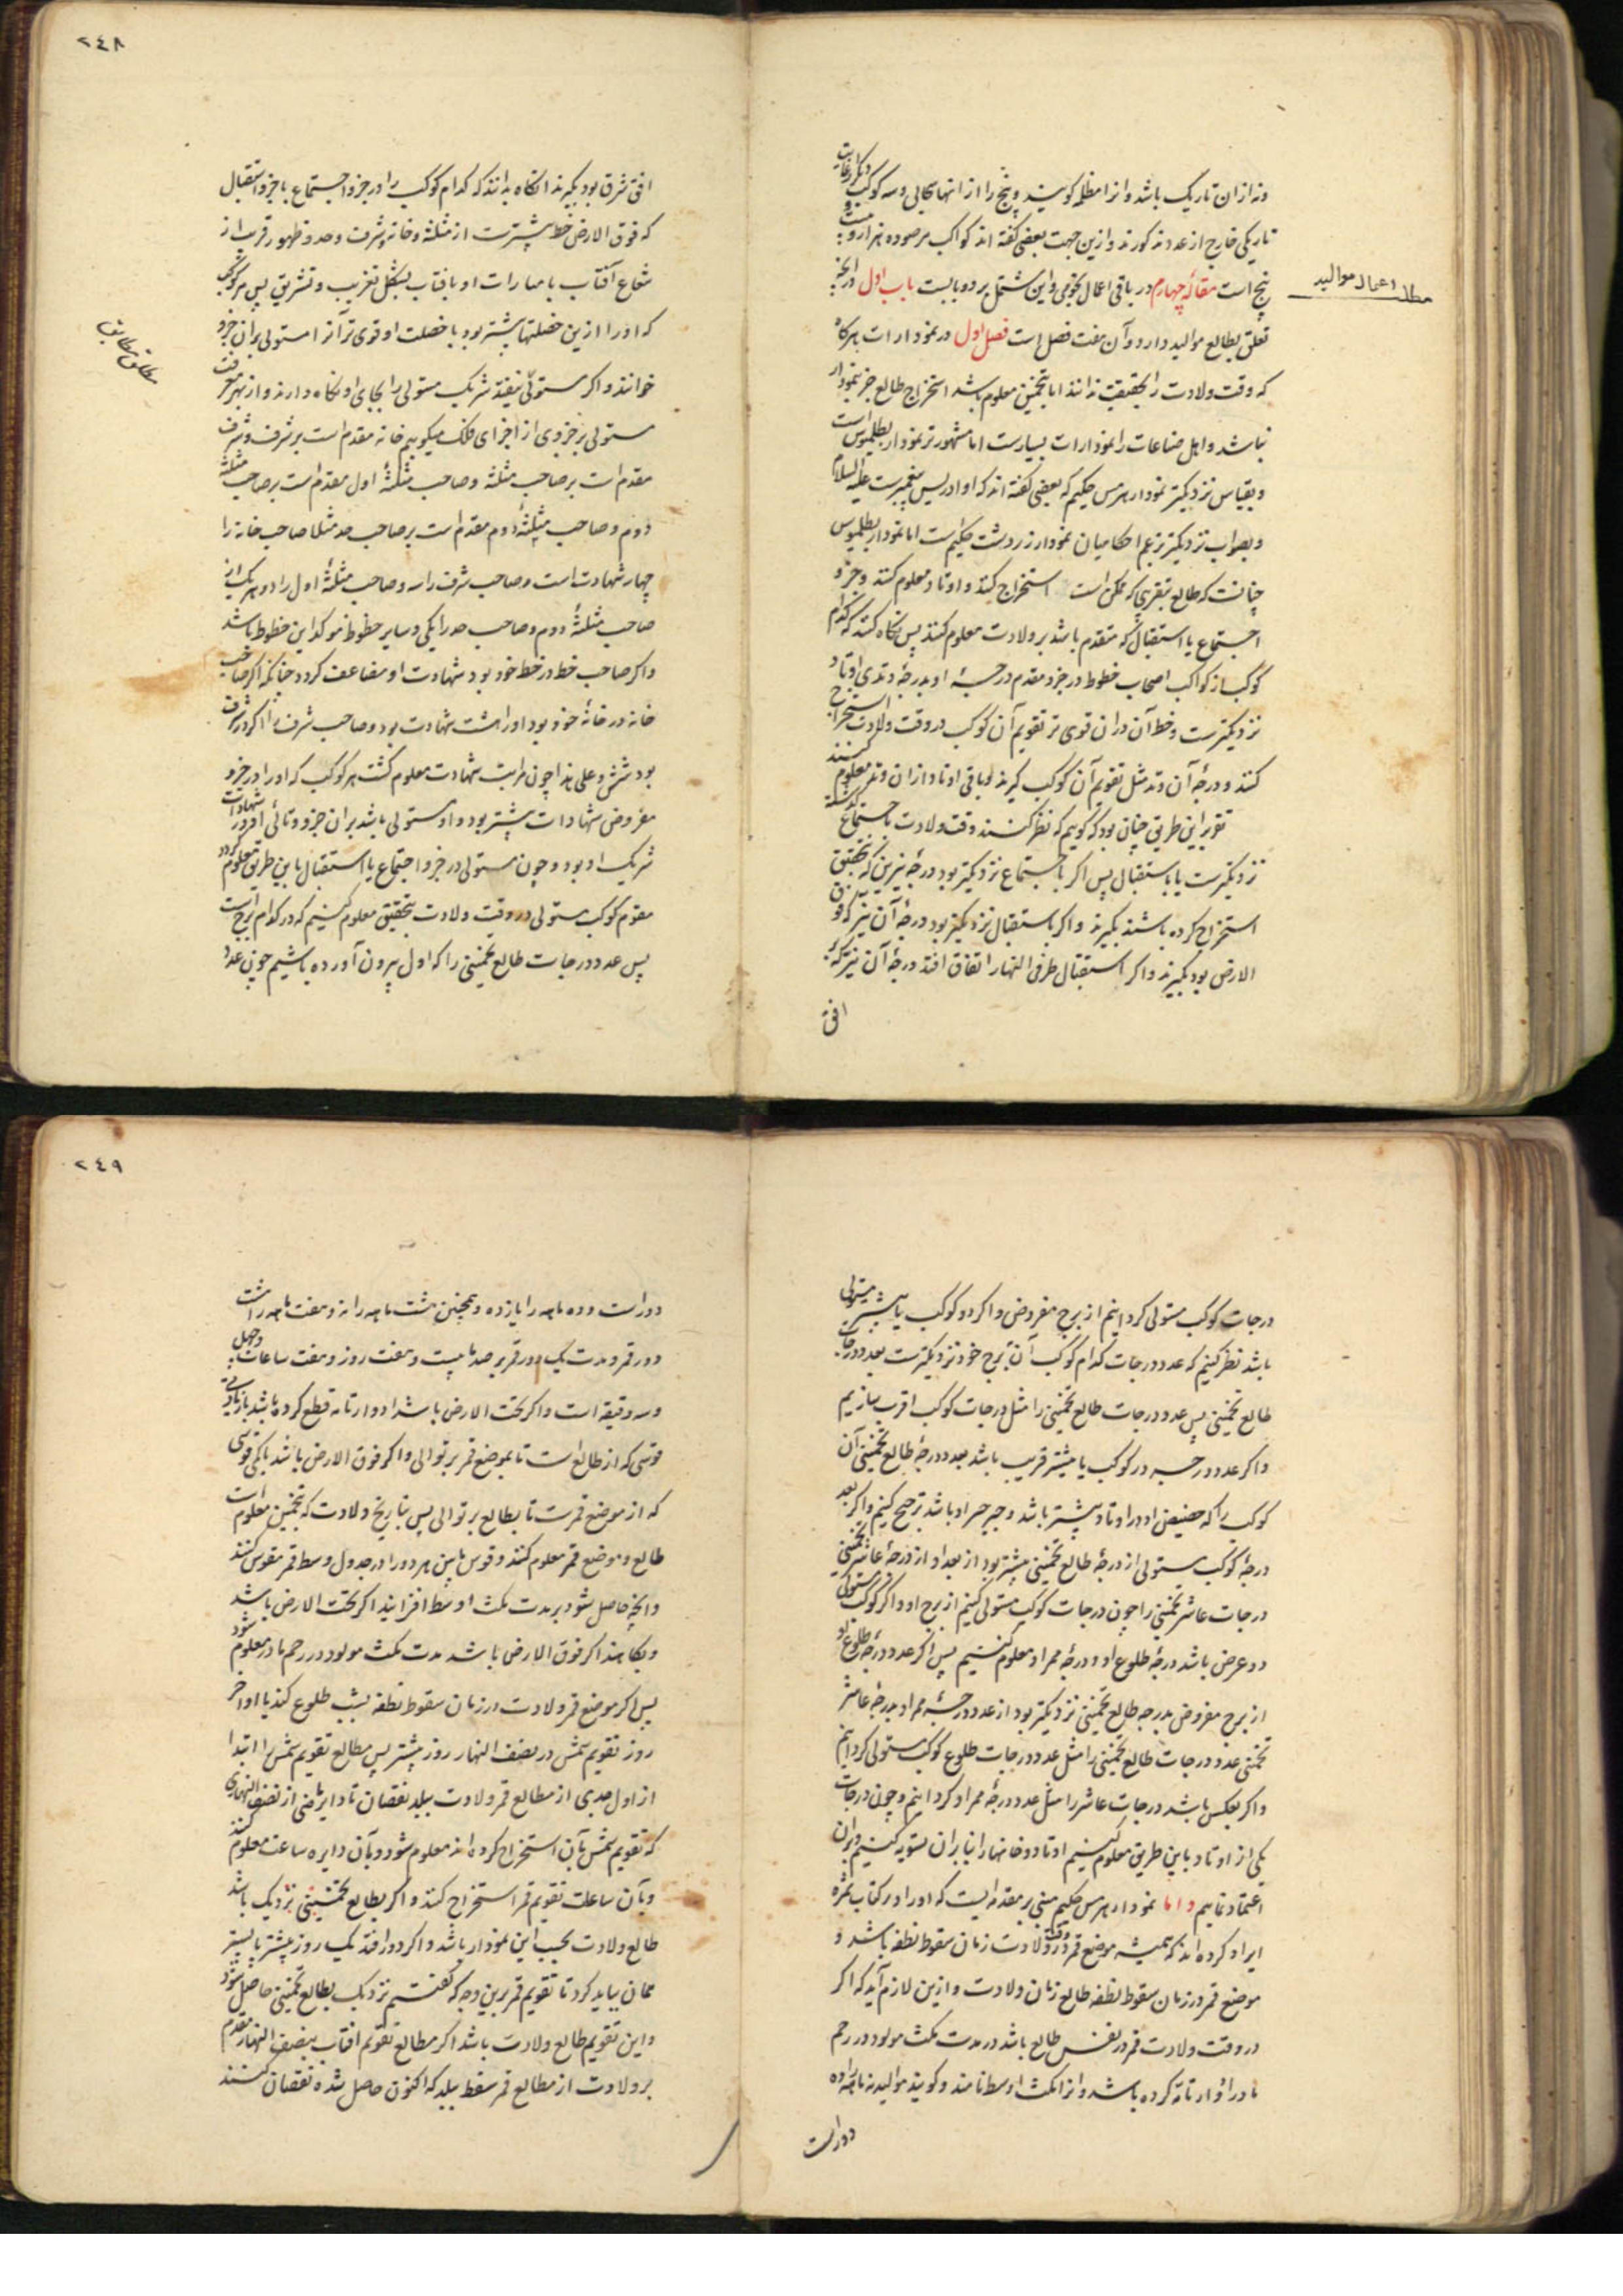 ونه ازان تاریک باشد و انرا مظلمه کویند و پنج را از انها سحابی و سه کوکب دیگر
تاریکی خارج از عدد مذکورند و ازین جهت بعضی کفته اند کواکب مرصوده هزار و بیست و
پنج است مقالهٔ چهارم در باقی اعمال نجومی و این مشتمل بر دو بابست باب اول در انچه
مطلب اعمال موالید
تعلق بطالع موالید دارد و آن هفت فصل است فصل اول در نمودارات هرکاه
که وقت ولادت را بحقیقت ندانند اما بتخمین معلوم باشد استخراج طالع جز بنمودار
نباشد و اهل صناعات را نمودارات بسیارست اما مشهورتر نمودار بطلمیوس است
و بقیاس نزدیکتر نمودار هرمس حکیم که بعضی کفته اند که او ادریس پیغمبرست علیه السلام
و بصواب نزدیکتر بزعم احکامیان نمودار زردشت حکیم است اما نمودار بطلمیوس
چنانست که طالع بتقریبی که ممکن است استخراج کنند و اوتاد معلوم کنند و جزو
اجتماع یا استقبال که متقدم باشد بر ولادت معلوم کنند پس نکاه کنند که کدام
کوکب از کواکب اصحاب حظوظ در جزو مقدم درجهٔ او بدرجهٔ وتدی از اوتاد
نزدیکترست و حظ آن دران قوی تر تقویم آن کوکب در وقت ولادت استخراج
کنند و درجهٔ آن وتد مثل تقویم آن کوکب کیرند و باقی اوتاد ازان وتد معلوم کنند
تقریر این طریق چنان بود که کوییم که نظر کنند وقت ولادت باجتماع کذشته
نزدیکترست یا باستقبال پس اکر باجتماع نزدیکتر بود درجهٔ نیرین که بتحقیق
استخراج کرده باشند بکیرند و اکر باستقبال نزدیکتر بود درجهٔ آن نیر که فوق
الارض بود بکیرند و اکر استقبال طرفی النهار اتفاق افتد درجهٔ آن نیر که بر
افق
٢٤٨
افق شرق بود بکیرند انکاه بدانند که کدام کوکب را در جزو اجتماع یا جزو استقبال
که فوق الارض حظ بیشترست از مثلثه و خانه و شرف و حد و ظهور قریب از
شعاع آفتاب یا مبارات او بافتاب بشکل تغریب و تشریق پس هر کوکب
که او را ازین خصلتها بیشتر بود یا خصلت او قوی تر آنرا مستولی بران جزو
خوانند و اکر مستولی نیفتد شریک مستولی را بجای او نکاه دارند و از بهر معرفت
مستولی بر جزوی از اجزای فلک میکوییم خانه مقدم است بر شرف و شرف
مقدم است بر صاحب مثلثه و صاحب مثلثهٔ اول مقدم است بر صاحب مثلثه
دوم و صاحب مثلثهٔ دوم مقدم است بر صاحب حد مثلا صاحب خانه را
چهار شهادت است و صاحب شرف را سه و صاحب مثلثهٔ اول را دو و هر یک از
صاحب مثلثهٔ دوم و صاحب حد را یکی و سایر حظوظ موکد این حظوظ باشد
و اکر صاحب حظ در حظ خود بود شهادت او مضاعف کردد چنانکه اکر صاحب
خانه در خانهٔ خود بود او را هشت شهادت بود و صاحب شرف را اکر در شرف
بود شش و علی هذا چون مراتب شهادت معلوم کشت هر کوکب که او را در جزو
مفروض شهادات بیشتر بود او مستولی باشد بران جزو و تالی او در شهادت
شریک او بود و چون مستولی در جزو اجتماع یا استقبال باین طریق معلوم کردد
مقوم کوکب مستولی در وقت ولادت بتحقیق معلوم کنیم که در کدام برج است
پس عدد درجات طالع تخمینی را که اول بیرون آورده باشیم چون عدد
درجات کوکب مستولی کردانیم از برج مفروض و اکر دو کوکب یا بیشتر مستولی
باشد نظر کنیم که عدد درجات کدام کوکب آن برج خود نزدیکترست بعدد درجات
طالع تخمینی پس عدد درجات طالع تخمینی را مثل درجات کوکب اقرب سازیم
و اکر عدد درجه در کوکب یا بیشتر قریب باشد بعدد درجهٔ طالع تخمینی آن
کوکب را که در اوتاد بیشتر باشد باشد ترجیح کنیم و اکر بعد
درجهٔ کوکب مستولی از درجهٔ طالع تخمینی بیشتر بود از بعد او از درجهٔ عاشر تخمینی
درجات عاشر تخمینی را چون درجات کوکب مستولی کنیم از برج او و اکر کوکب مستولی
ذو عرض باشد درجهٔ طلوع او و درجهٔ ممر او معلوم کنیم پس اکر عدد درجهٔ طلوع او
از برج مفروض بدرجه طالع تخمینی نزدیکتر بود از عدد درجهٔ ممر او بدرجهٔ عاشر
تخمینی عدد درجات طالع تخمینی را مثل عدد درجات طلوع کوکب مستولی کردانیم
و اکر بعکس باشد درجات عاشر را مثل عدد درجهٔ ممر او کردانیم و چون درجات
یکی از اوتاد باین طریق معلوم کنیم اوتاد و خانها را بنا بران تسویه کنیم و بران
اعتماد نماییم و اما نمودار هرمس حکیم مبنی بر مقدمه ایست که او را در کتاب ثمره
ایراد کرده اند که همیشه موضع قمر در وقت ولادت زمان سقوط نطفه باشد و
موضع قمر در زمان سقوط نطفه طالع زمان ولادت و ازین لازم آید که اکر
در وقت ولادت قمر در نفس طالع باشد در مدت مکث مولود در رحم
مادر ادوار تامه کرده باشد و انرا مکث اوسط نامند و کویند موالید نه ماهه را ده
دورست
٢٤٩
دورست و ده ماهه را یازده و همچنین هشت ماهه را نه و هفت ماهه را هشت
دور قمر و مدت یک دور قمر برصد ما بیست و هفت روز و هفت ساعات و چهل
و سه دقیقه است و اکر تحت الارض باشد ادوار تامه قطع کرده باشد با زیادتی
قوسی که از طالع است تا بموضع قمر بر توالی و اکر فوق الارض باشد با کمی قوسی
که از موضع قمرست تا بطالع بر توالی پس بتاریخ ولادت که بتخمین معلوم است
طالع و موضع قمر معلوم کنند و قوس مابین هر دو را در جدول وسط قمر مقوس کنند
و انچه حاصل شود بر مدت مکث اوسط افزایند اکر تحت الارض باشد
و بکاهند اکر فوق الارض باشد مدت مکث مولود در رحم مادر معلوم شود
پس اکر موضع قمر ولادت در زمان سقوط نطفه بشب طلوع کند یا اواخر
روز تقویم شمس در نصف النهار روز پیشتر پس مطالع تقویم شمس را ابتدا
از اول جدی از مطالع قمر ولادت ببلد نقصان تا دایر ماضی از نصف النهاری
که تقویم شمس بآن استخراج کرده اند معلوم شود و بآن دایره ساعت معلوم کنند
و بآن ساعت تقویم قمر استخراج کنند و اکر بطالع تخمینی نزدیک باشد
طالع ولادت بحسب این نمودار باشد و اکر دور افتد یک روز پیشتر یا پستر
همان بباید کرد تا تقویم قمر برین وجه که کفتیم نزدیک بطالع تخمینی حاصل شود
و این تقویم طالع ولادت باشد اکر مطالع تقویم افتاب بنصف النهار مقدم
بر ولادت از مطالع قمر سقط ببلد که اکنون حاصل شده نقصان کنند